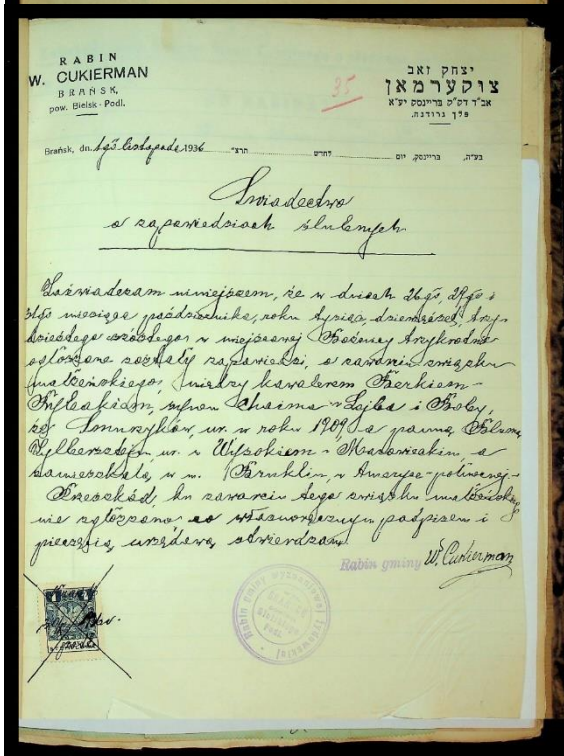 RABIN
W. CUKIERMAN
BRAŃSK,
pow. Bielsk-Podl.
יצחק זאב
צוקערמאן
אב"ד דק"ק בריינסק יע"א
פלך גרודנה.
35
Brańsk, dn. 1go listopada 1936
בע"ה, בריינסק, יום לחדש תרצ"
Świadectwo
o zapowiedziach ślubnych
Zaświadczam niniejszem, że w dniach 26go, 29go i
31go miesiąca października, roku tysiąc dziewięćset trzy-
dziestego szóstego w miejscowej Bożnicy trzykrotnie
ogłoszone zostały zapowiedzi, o zawarciu związku
małżeńskiego, między kawalerem Berkiem-
synem Chaima-Lejba i
ur. w roku 1909, a panną Blumą
Zylbersztejn ur. w Wysokiem-Mazowieckim, a
zamieszkałą w m. Bruklin, w Ameryce-północnej-
Przeszkód ku zawarciu tego związku małżeńskiego
nie zgłoszono, co własnoręcznym podpisem i
pieczęcią urzędową stwierdzam
Rabin gminy W. Cukierman
Rabin gminy wyznaniowej żydowskiej